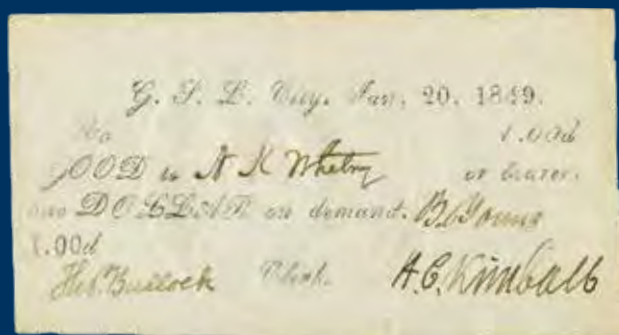 G. S. L. City, Jan, 20, 1849.
No 1.00d
GOOD to N K Whitney or bearer.
One DOLLAR on demand. B. Young
1.00d
Thos. Bullock Clerk. H. C. Kimball